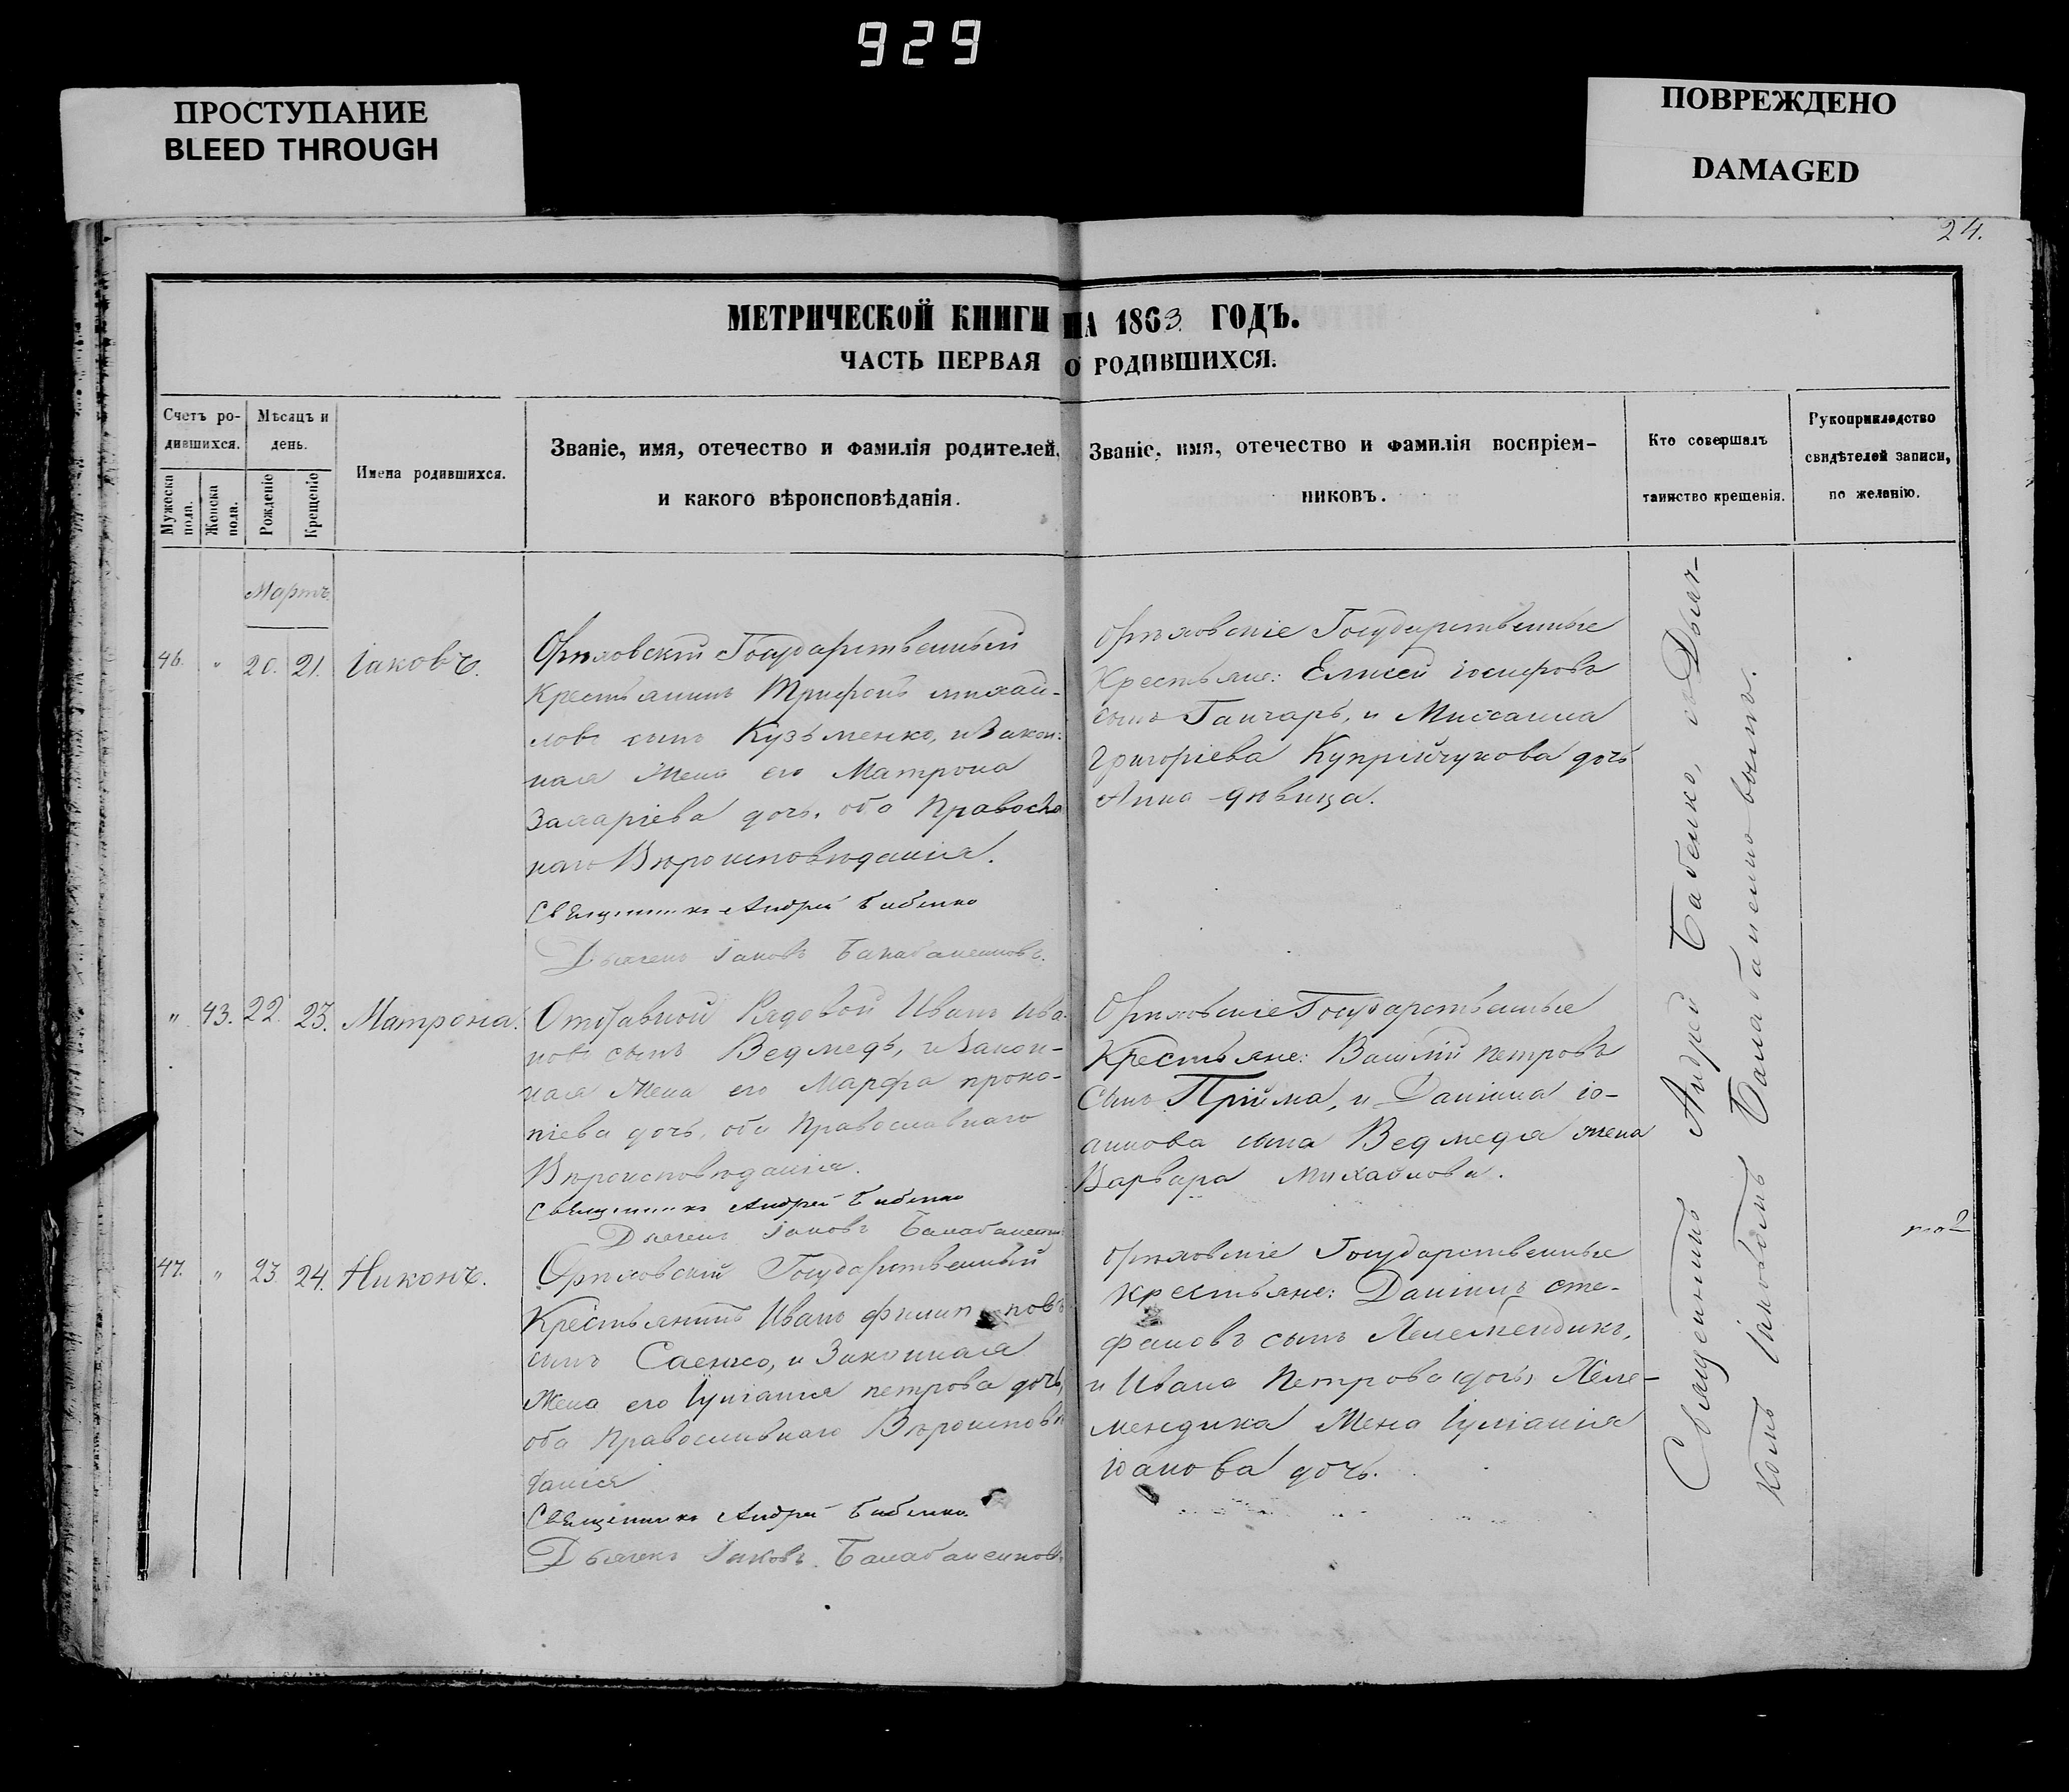 929
ПРОСТУПАНИЕ
BLEED THROUGH
ПОВРЕЖДЕНО
DAMAGED
24.
МЕТРИЧЕСКОЙ КНИГИ НА 1863 ГОДЪ.
ЧАСТЬ ПЕРВАЯ О РОДИВШИХСЯ.
Счетъ ро-
дившихся.
Мужеска пола.
Женска пола.
Мѣсяцъ и
день.
Рожденіе
Крещеніе
Имена родившихся.
Званіе, имя, отечество и фамилія родителей,
и какого вѣроисповѣданія.
Званіе, имя, отечество и фамилія воспріем-
никовъ.
Кто совершалъ
таинство крещенія.
Рукоприкладство
свидѣтелей записи,
по желанію.
Мартъ
46. " 20. 21. Іаковъ.
Орѣховскій Государственный
Крестьянинъ Трифонъ михай-
ловъ сынъ Кузьменко, и Закон:
ная Жена его Матрона
Захаріева дочь, оба Правосла
наго Вѣроисповѣданія.
Священникъ Андрей Бабенко
Дьячекъ Іаковъ Балабаненковъ.
Орѣховскіе Государственные
Крестьяне: Елисей іосифовъ
сынъ Ганчаръ, и Миссаила
Григоріева Купрійчукова дочь
Анна дѣвица.
" 43. 22. 23. Матрона.
Отставной Рядовой Иванъ Ива-
новъ сынъ Ведмедь, и Закон-
ная Жена его Марфа проко-
піева дочь, оба Православнаго
Вѣроисповѣданія.
Священникъ Андрей Бабенко
Дьячекъ Іаковъ Балабаненк
Орѣховскіе Государственные
Крестьяне: Василій петровъ
Сынъ Прійма, и Даніила іо-
аннова сына Ведмедя жена
Варвара Михайлова.
47. " 23. 24. Никонъ.
Орѣховскій Государственный
Крестьянинъ Иванъ филипповъ
сынъ Саенко, и Законная
Жена его Іуліанія петрова дочь,
оба Православнаго Вѣроисповѣ
данія
Священникъ Андрей Бабенко.
Дьячекъ Іаковъ Балабаненковъ
Орѣховскіе Государственные
крестьяне: Даніилъ сте-
фановъ сынъ Желемендикъ,
и Ивана Петрова дочь, Желе-
мендика Жена Іуліанія
іоанова дочь.
Священникъ Андрей Бабенко, съ Дьяч-
комъ Іаковомъ Балабаненковымъ.